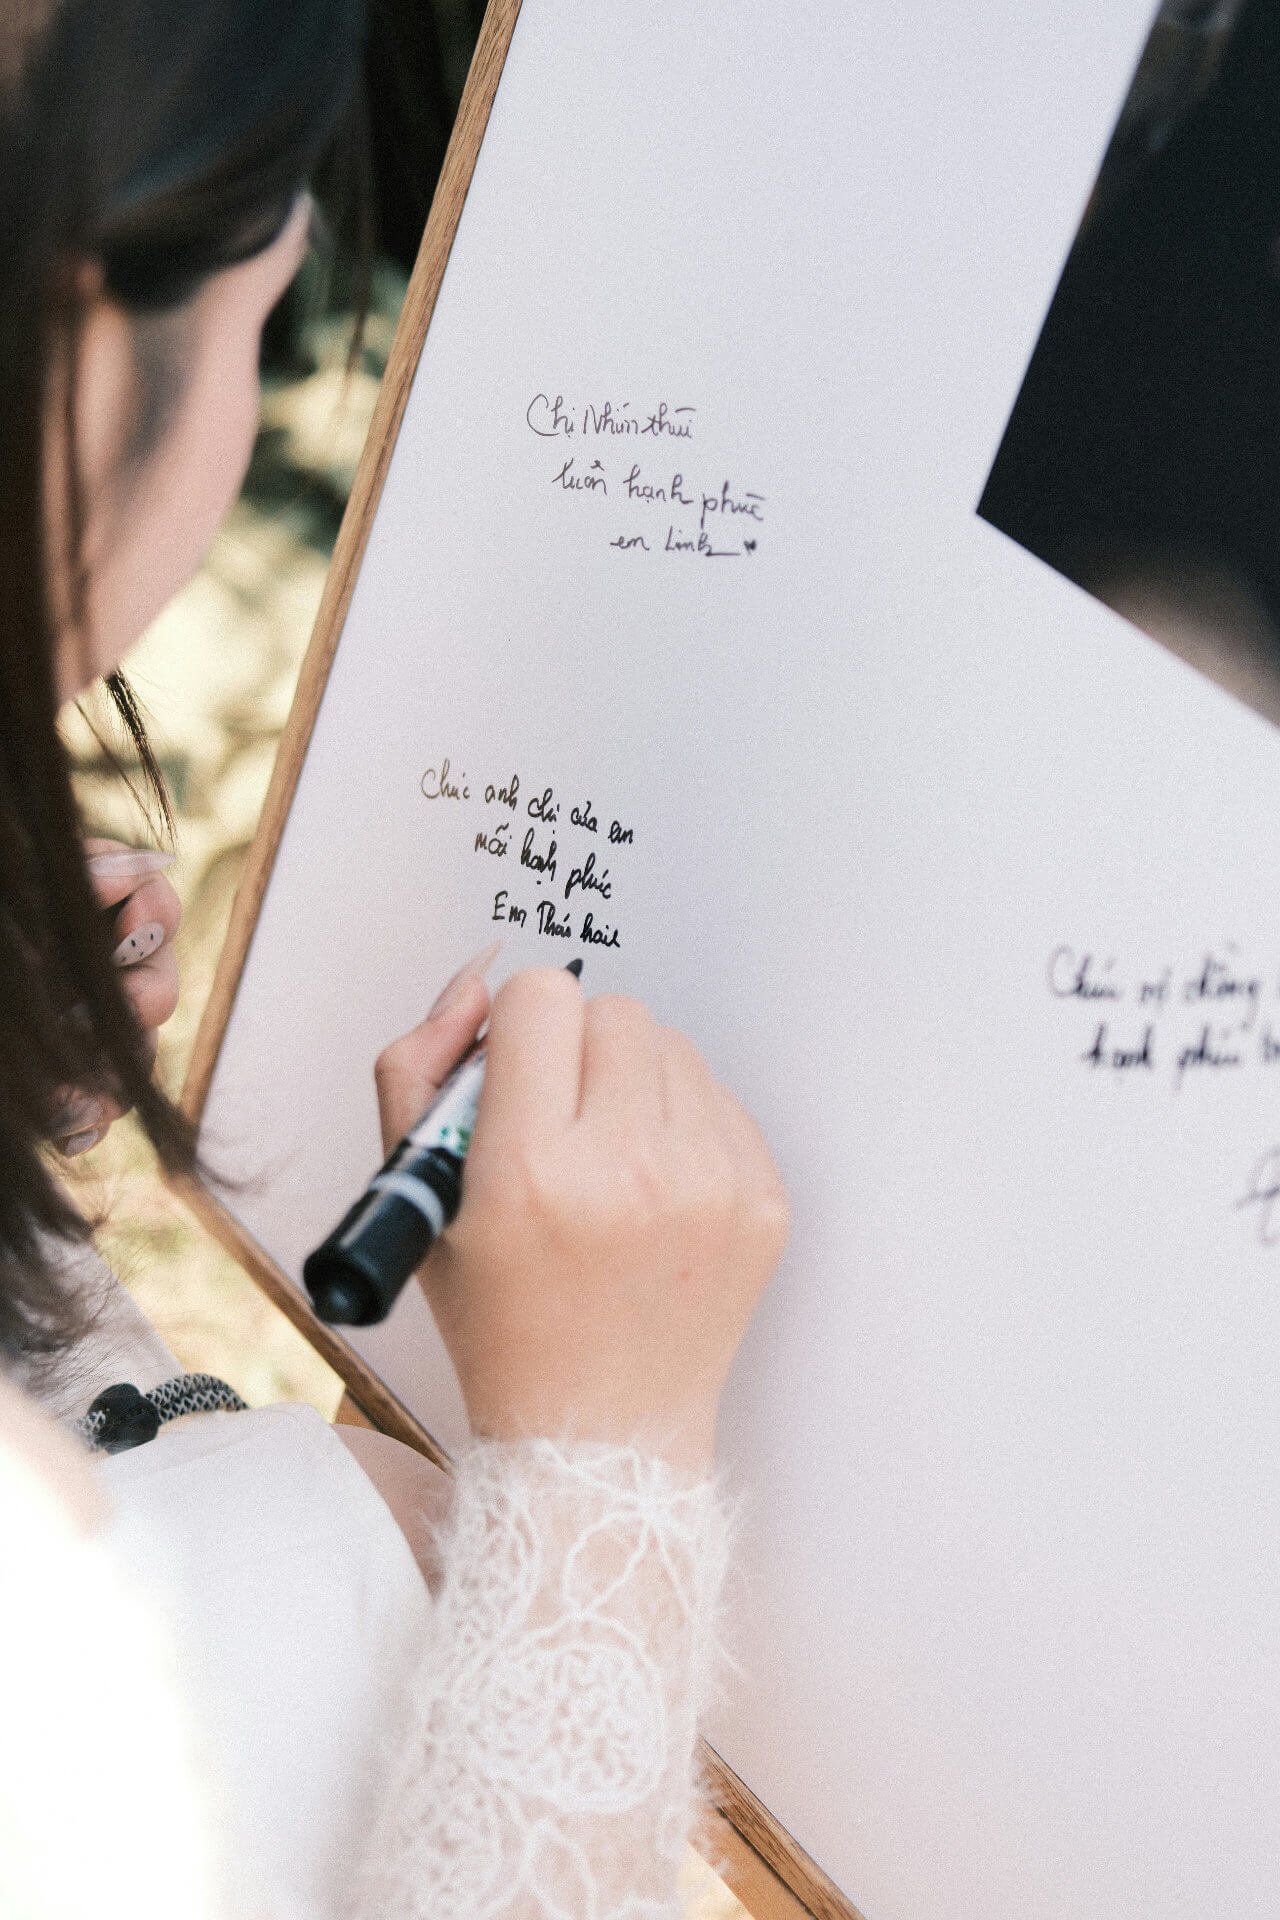 Chị Nhím thúi
luôn hạnh phúc
em Linh ♥
Chúc anh chị của em
mãi hạnh phúc
Em
Chúc vợ chồng
hạnh phúc